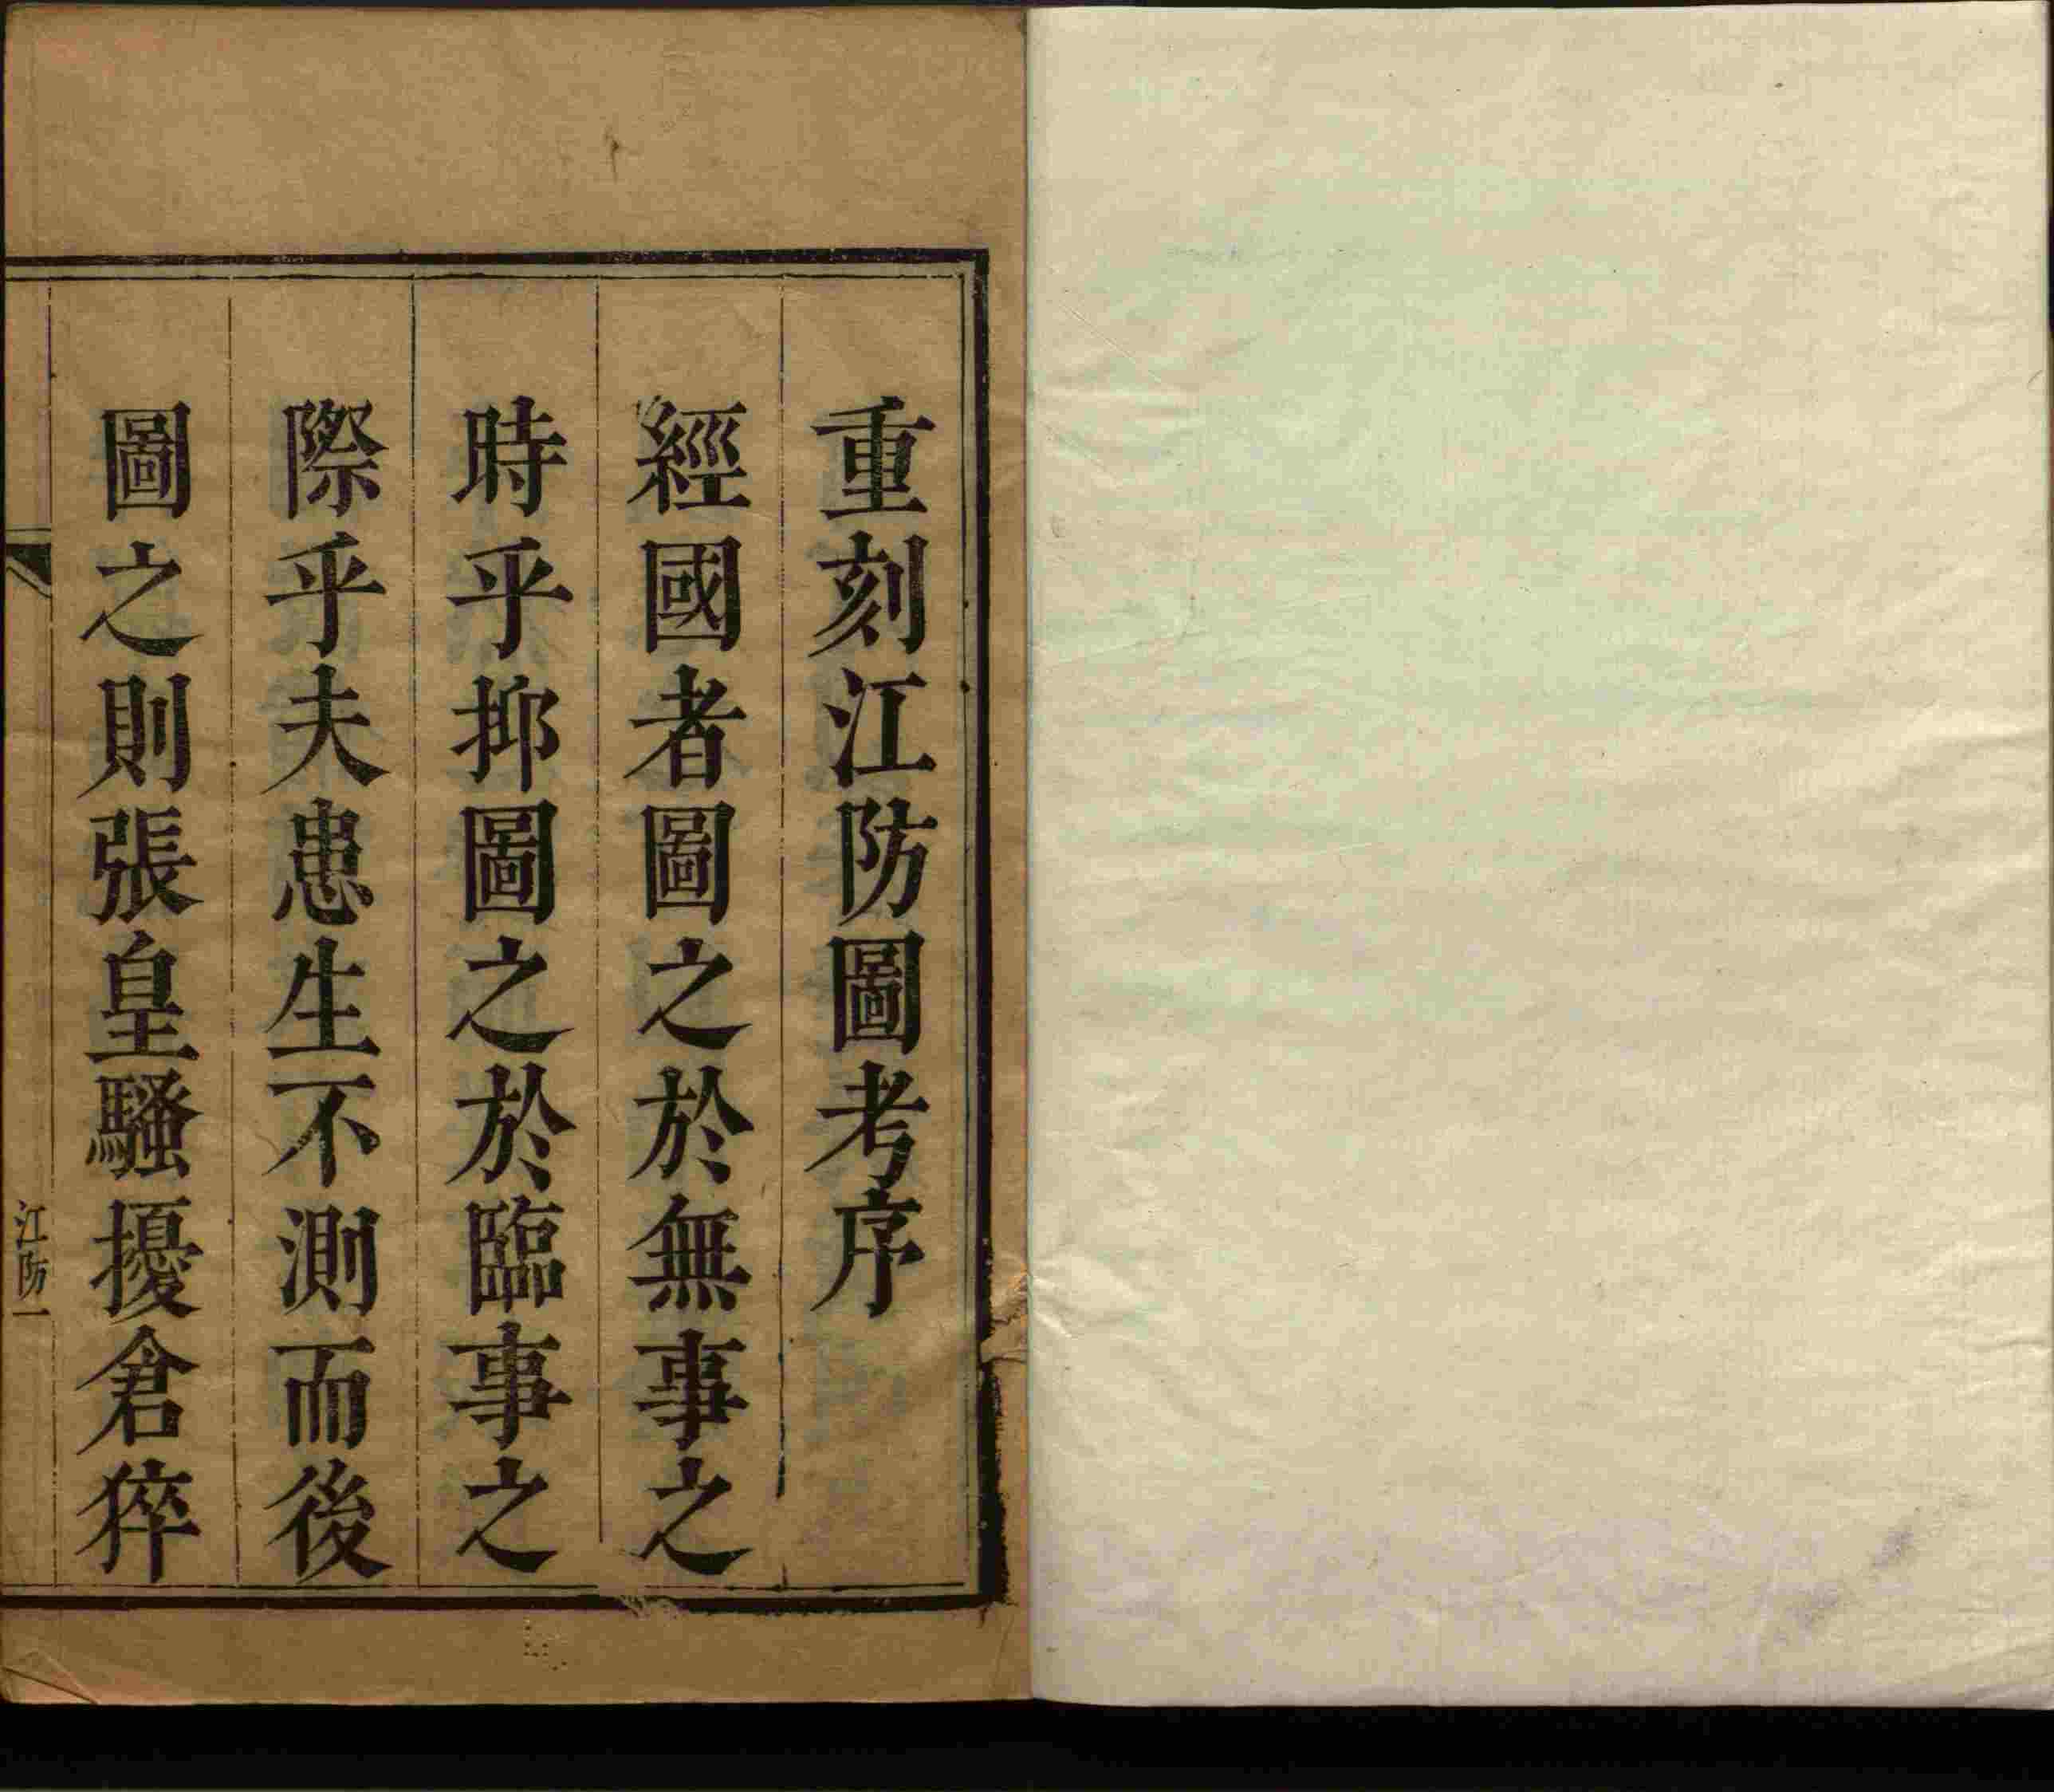 重刻江防圖考序
經國者圖之於無事之
時乎抑圖之於臨事之
際乎夫患生不測而後
圖之則張皇騷擾倉猝
江防一